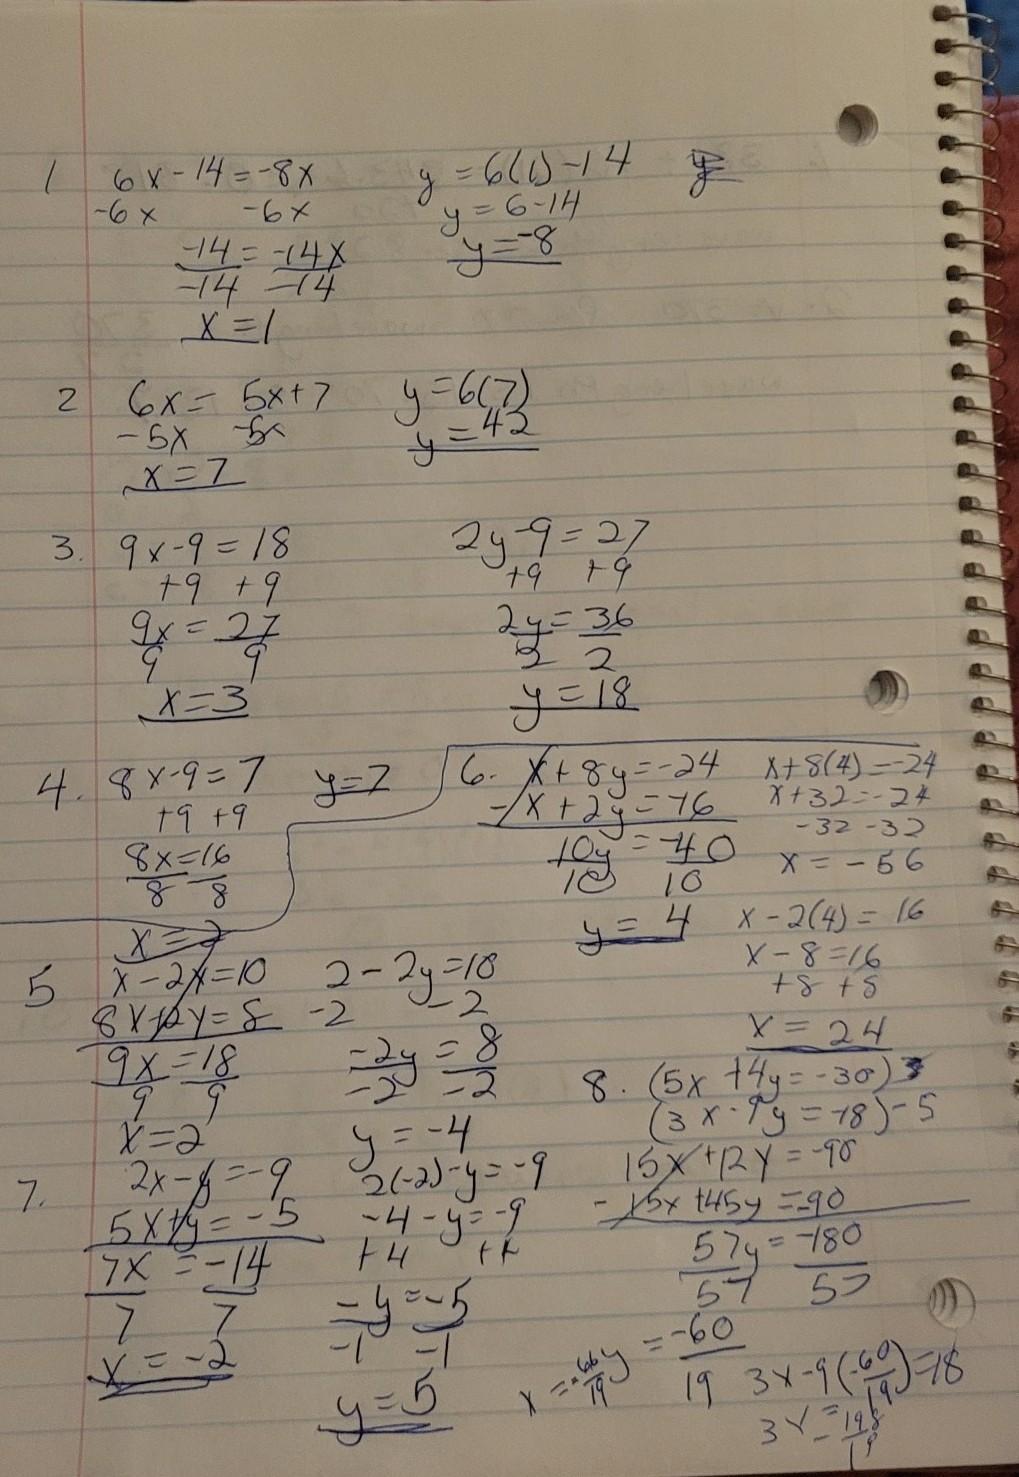 1 6x-14=-8x y=6(1)-14
-6x -6x y=6-14
-14=-14x y=-8
-14 -14
x=1
2 6x=5x+7 y=6(7)
-5x -5x y=42
x=7
3. 9x-9=18 2y-9=27
+9 +9 +9 +9
9x=27 2y=36
9 9 2 2
x=3 y=18
4. 8x-9=7 y=7
+9 +9
8x=16
8 8
x=2
6. x+8y=-24 x+8(4)=-24
-x+2y=-16 x+32=-24
10y=-40 -32 -32
10 10 x=-56
y=4 x-2(4)=16
x-8=16
+8 +8
x=24
5 x-2y=10 2-2y=10
8x+2y=8 -2 -2
9x=18 -2y=8
9 9 -2 -2
x=2 y=-4
7. 2x-y=-9 2(-2)-y=-9
5x+y=-5 -4-y=-9
7x=-14 +4 +4
7 7 -y=-5
x=-2 -1 -1
y=5
8. (5x+4y=-30)3
(3x-9y=-18)-5
15x+12y=-90
-15x+45y=-90
57y=-180
57 57
y=-60
19
3x-9(-60
19)=18
3x=198
19